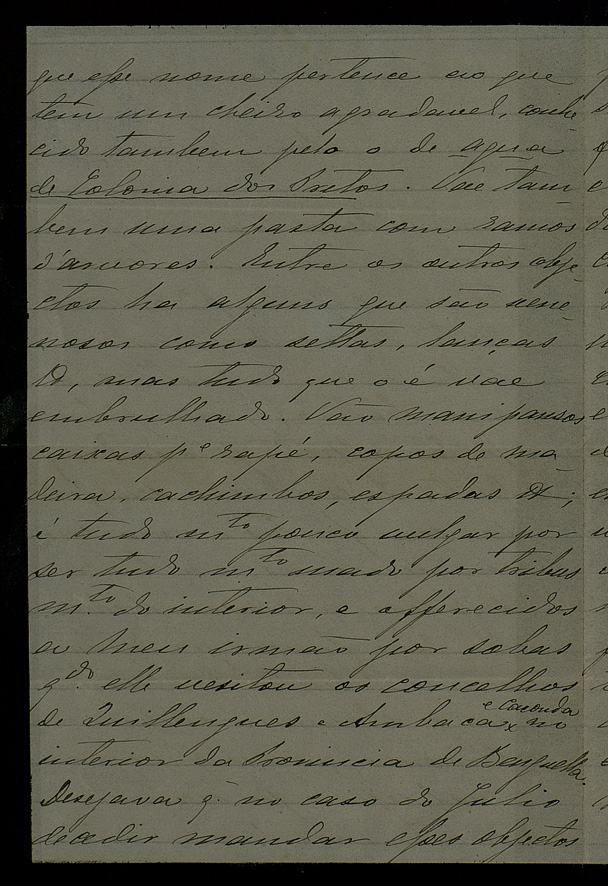 que esse nome pertence ao que
tem um cheiro agradavel, conhe
cido tambem pelo o de agua
de Colonia dos Pretos. Vae tam
bem uma pasta com ramos
d'arvores. Entre os outros obje
ctos ha alguns que são vene
nosos como settas, lanças
&, mas tudo que o é vae
embrulhado. Vão manipansos
caixas p.ª rapé, copos de ma
deira, cachimbos, espadas &;
é tudo m.to pouco vulgar por
ser tudo m.to usado por tribus
m.to do interior, e offerecidos
a meu irmão por sobas
q.do elle visitou os concelhos
de Quillengues e Ambaca e Caconda no
interior da Provincia de Benguella.
Desejava q. no caso do Julio
decidir mandar esses objectos